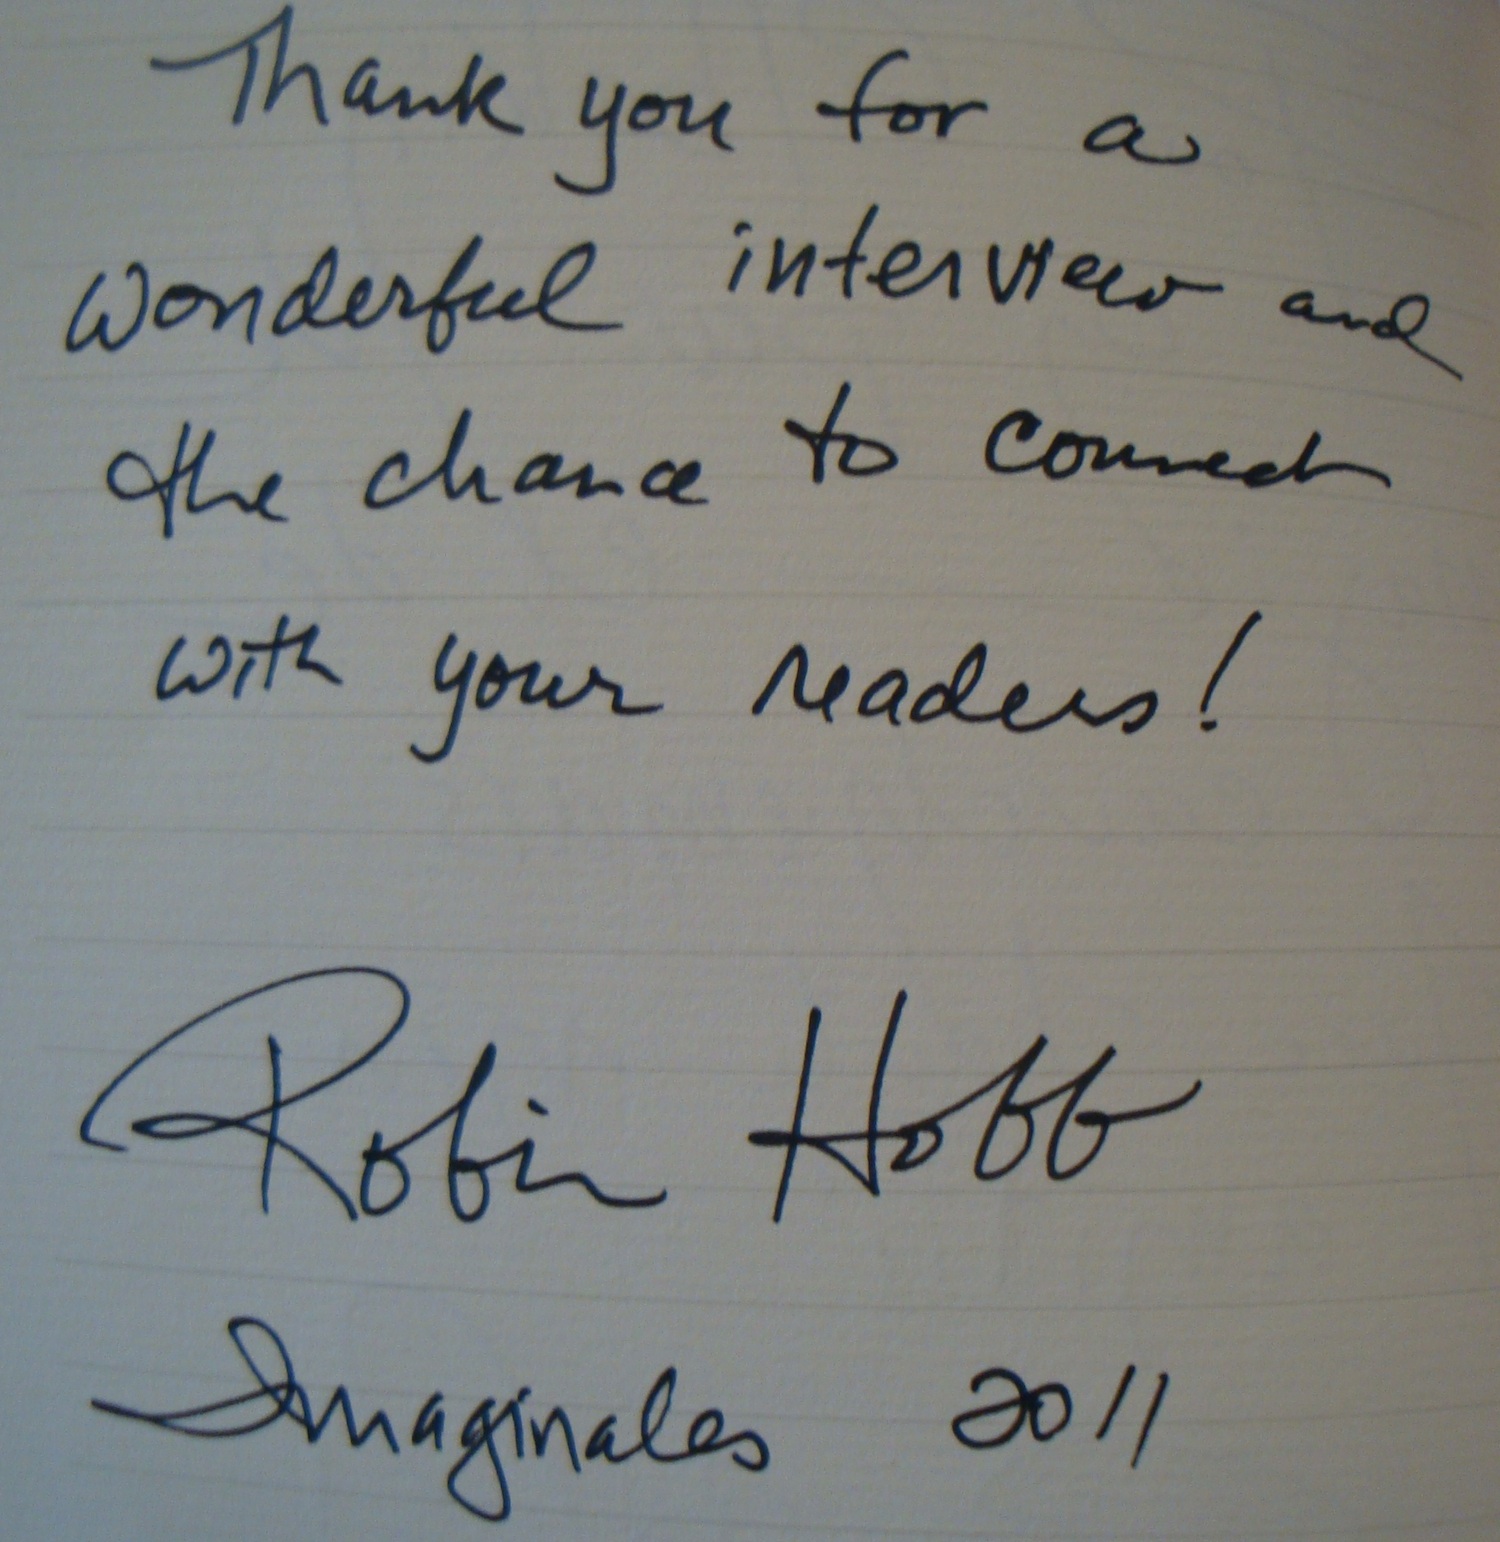 Thank you for a
wonderful interview and
the chance to connect
with your readers!
Robin Hobb
Imaginales 2011